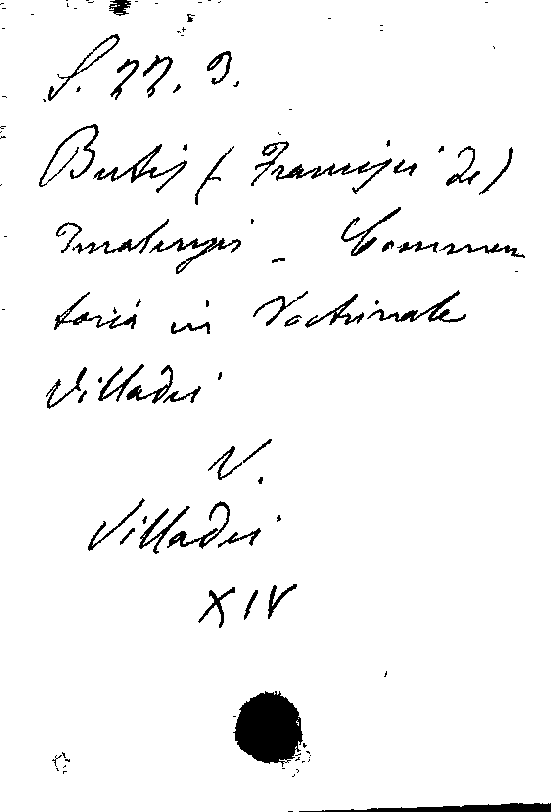 S. 22. 3.
Butis (Francisci de)
Commen
taria in Doctrinale
Villadei
V.
Villadei
XIV